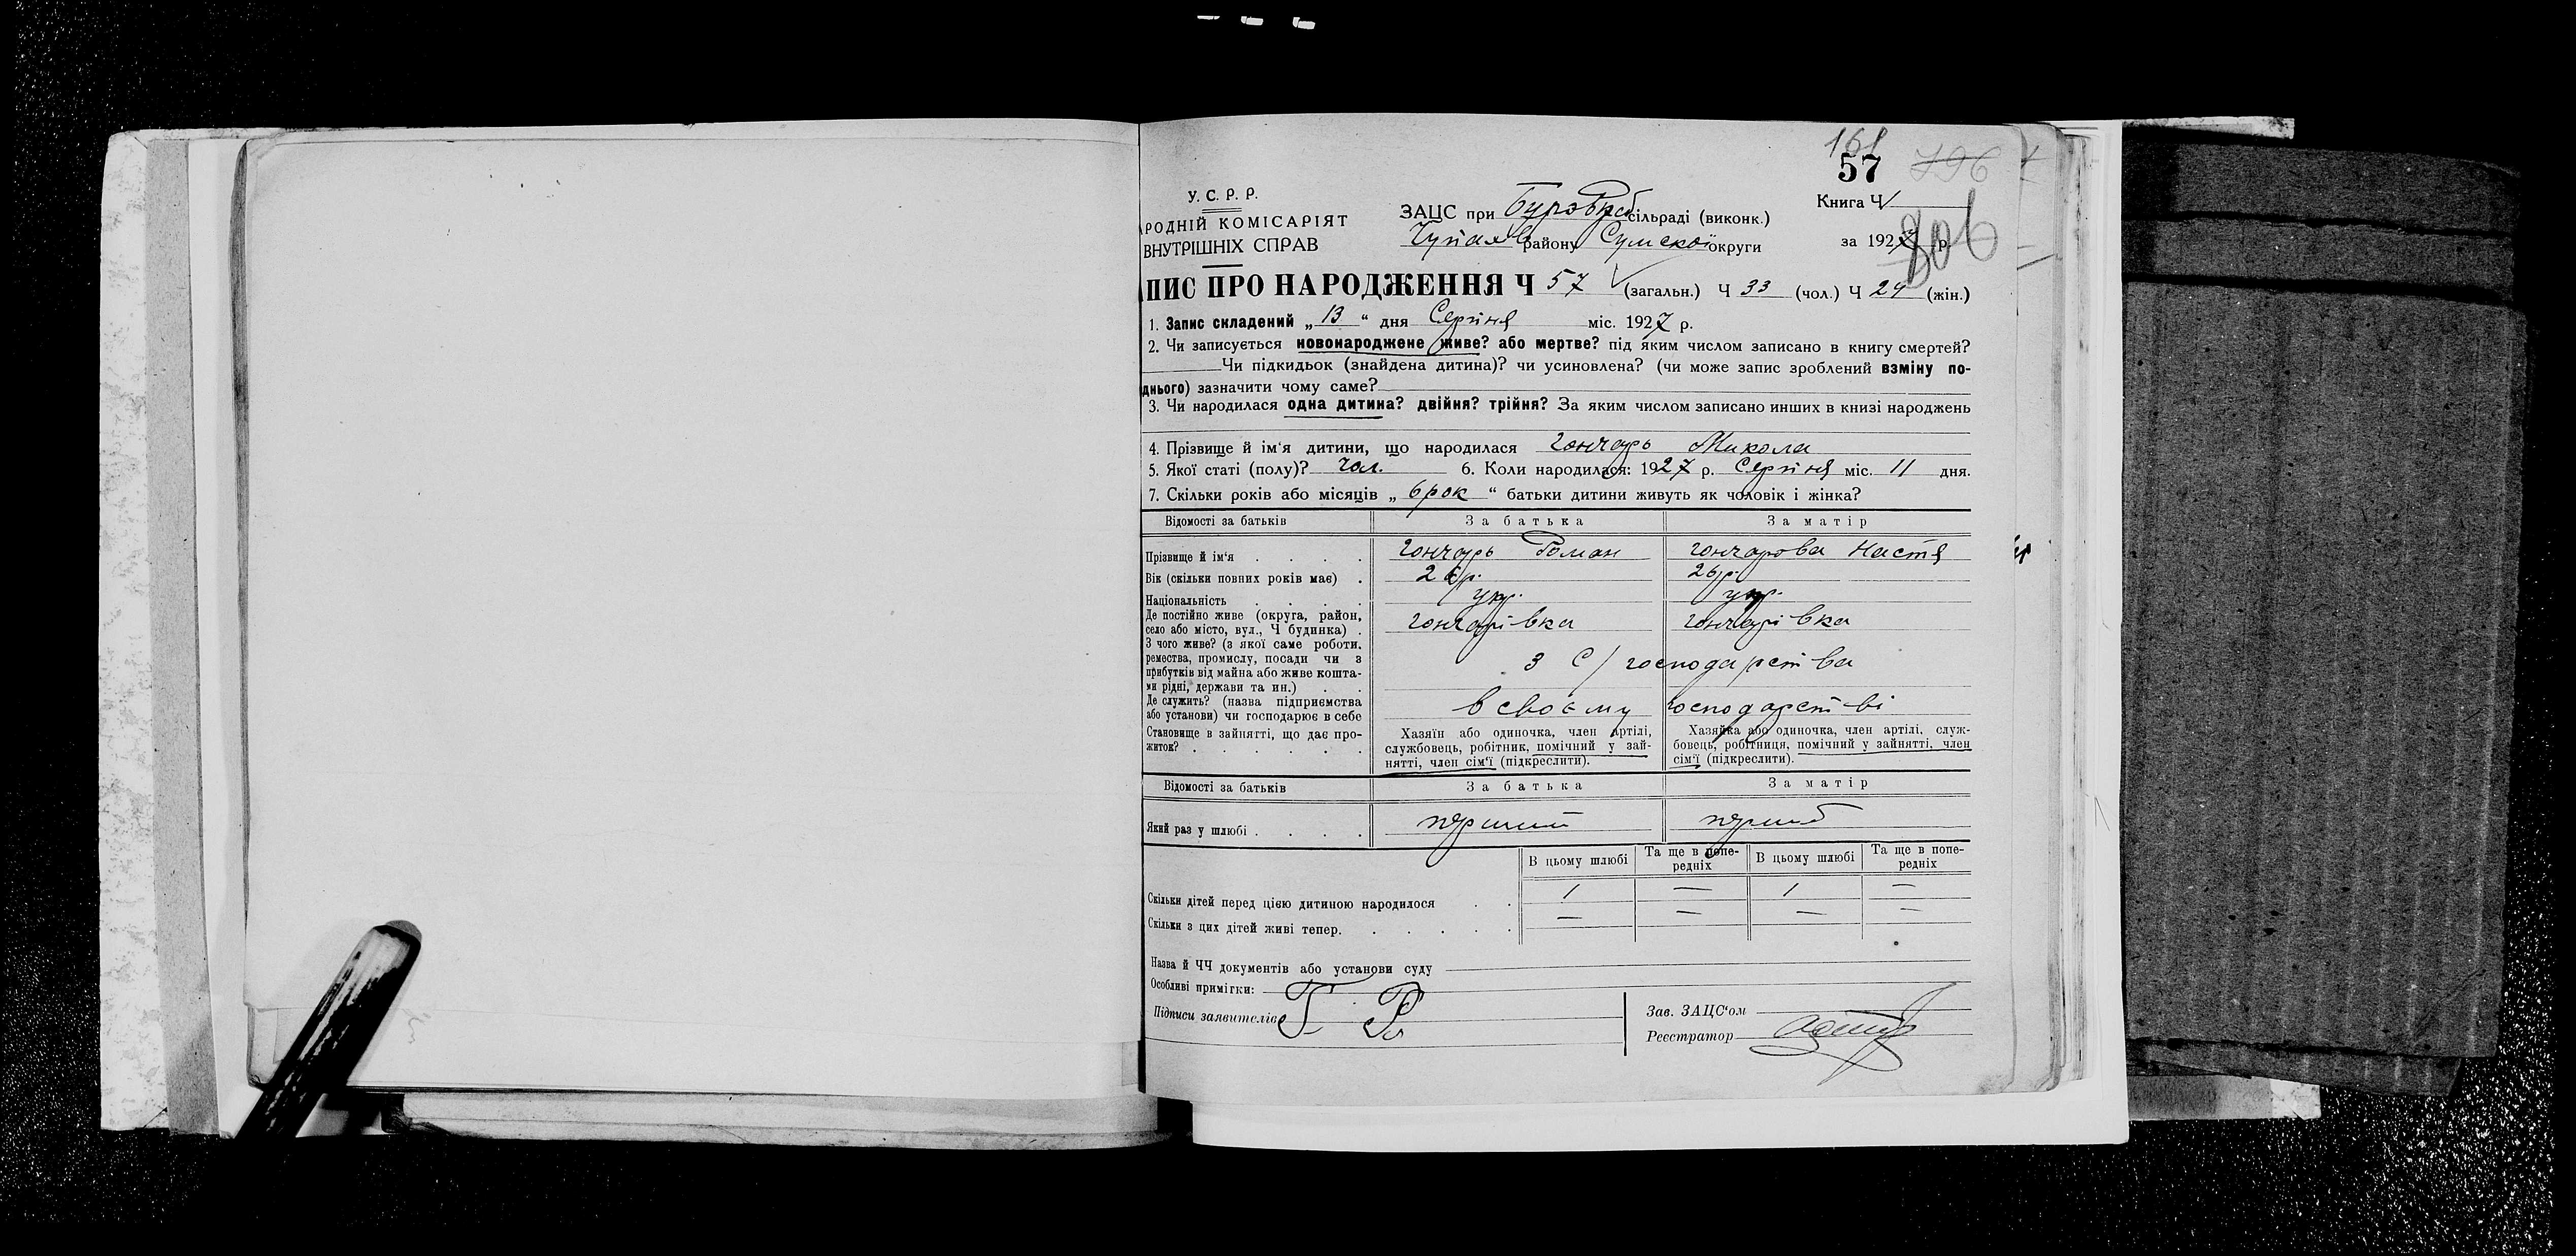 161
57 796
У. С. Р. Р.
РОДНІЙ КОМІСАРІЯТ
ВНУТРІШНІХ СПРАВ
ЗАЦС при сільраді (виконк.)
району Сумскої округи
Книга Ч
за 1927 р.
806
ПИС ПРО НАРОДЖЕННЯ Ч 57 (загальн.) Ч 33 (чол.) Ч 24 (жін.)
1. Запис складений „ 13 “ дня Серпня міс. 1927 р.
2. Чи записується новонароджене живе? або мертве? під яким числом записано в книгу смертей?
Чи підкидьок (знайдена дитина)? чи усиновлена? (чи може запис зроблений взміну по-
днього) зазначити чому саме?
3. Чи народилася одна дитина? двійня? трійня? За яким числом записано инших в книзі народжень
4. Прізвище й ім'я дитини, що народилася Гончарь Микола
5. Якої статі (полу)? чол. 6. Коли народилася: 1927 р. Серпня міс. 11 дня.
7. Скільки років або місяців „ 6 рок “ батьки дитини живуть як чоловік і жінка?
Відомості за батьків За батька За матір
Прізвище й ім'я . . . . Гончарь Роман Гончарова Настя
Вік (скільки повних років має) . 26 р. 26 р.
Національність . . . . укр. укр.
Де постійно живе (округа, район,
село або місто, вул., Ч будинка) . Гончарівка Гончарівка
З чого живе? (з якої саме роботи,
ремества, промислу, посади чи з
прибутків від майна або живе кошта-
ми рідні, держави та ин.) . . З С/господарства
Де служить? (назва підприємства
або установи) чи господарює в себе в своєму господарстві
Становище в зайнятті, що дає про-
житок? . . . . . .
Хазяїн або одиночка, член артілі,
службовець, робітник, помічний у зай-
нятті, член сім'ї (підкреслити).
Хазяйка або одиночка, член артілі, служ-
бовець, робітниця, помічний у зайнятті, член
сім'ї (підкреслити).
Відомості за батьків За батька За матір
Який раз у шлюбі . . . . перший перший
В цьому шлюбі Та ще в попе-редніх В цьому шлюбі Та ще в попе-редніх
Скільки дітей перед цією дитиною народилося . . 1 — 1 —
Скільки з цих дітей живі тепер. . . . . . — — — —
Назва й ЧЧ документів або установи суду
Особливі примітки:
Підписи заявителів Г Р
Зав. ЗАЦС'ом
Реєстратор